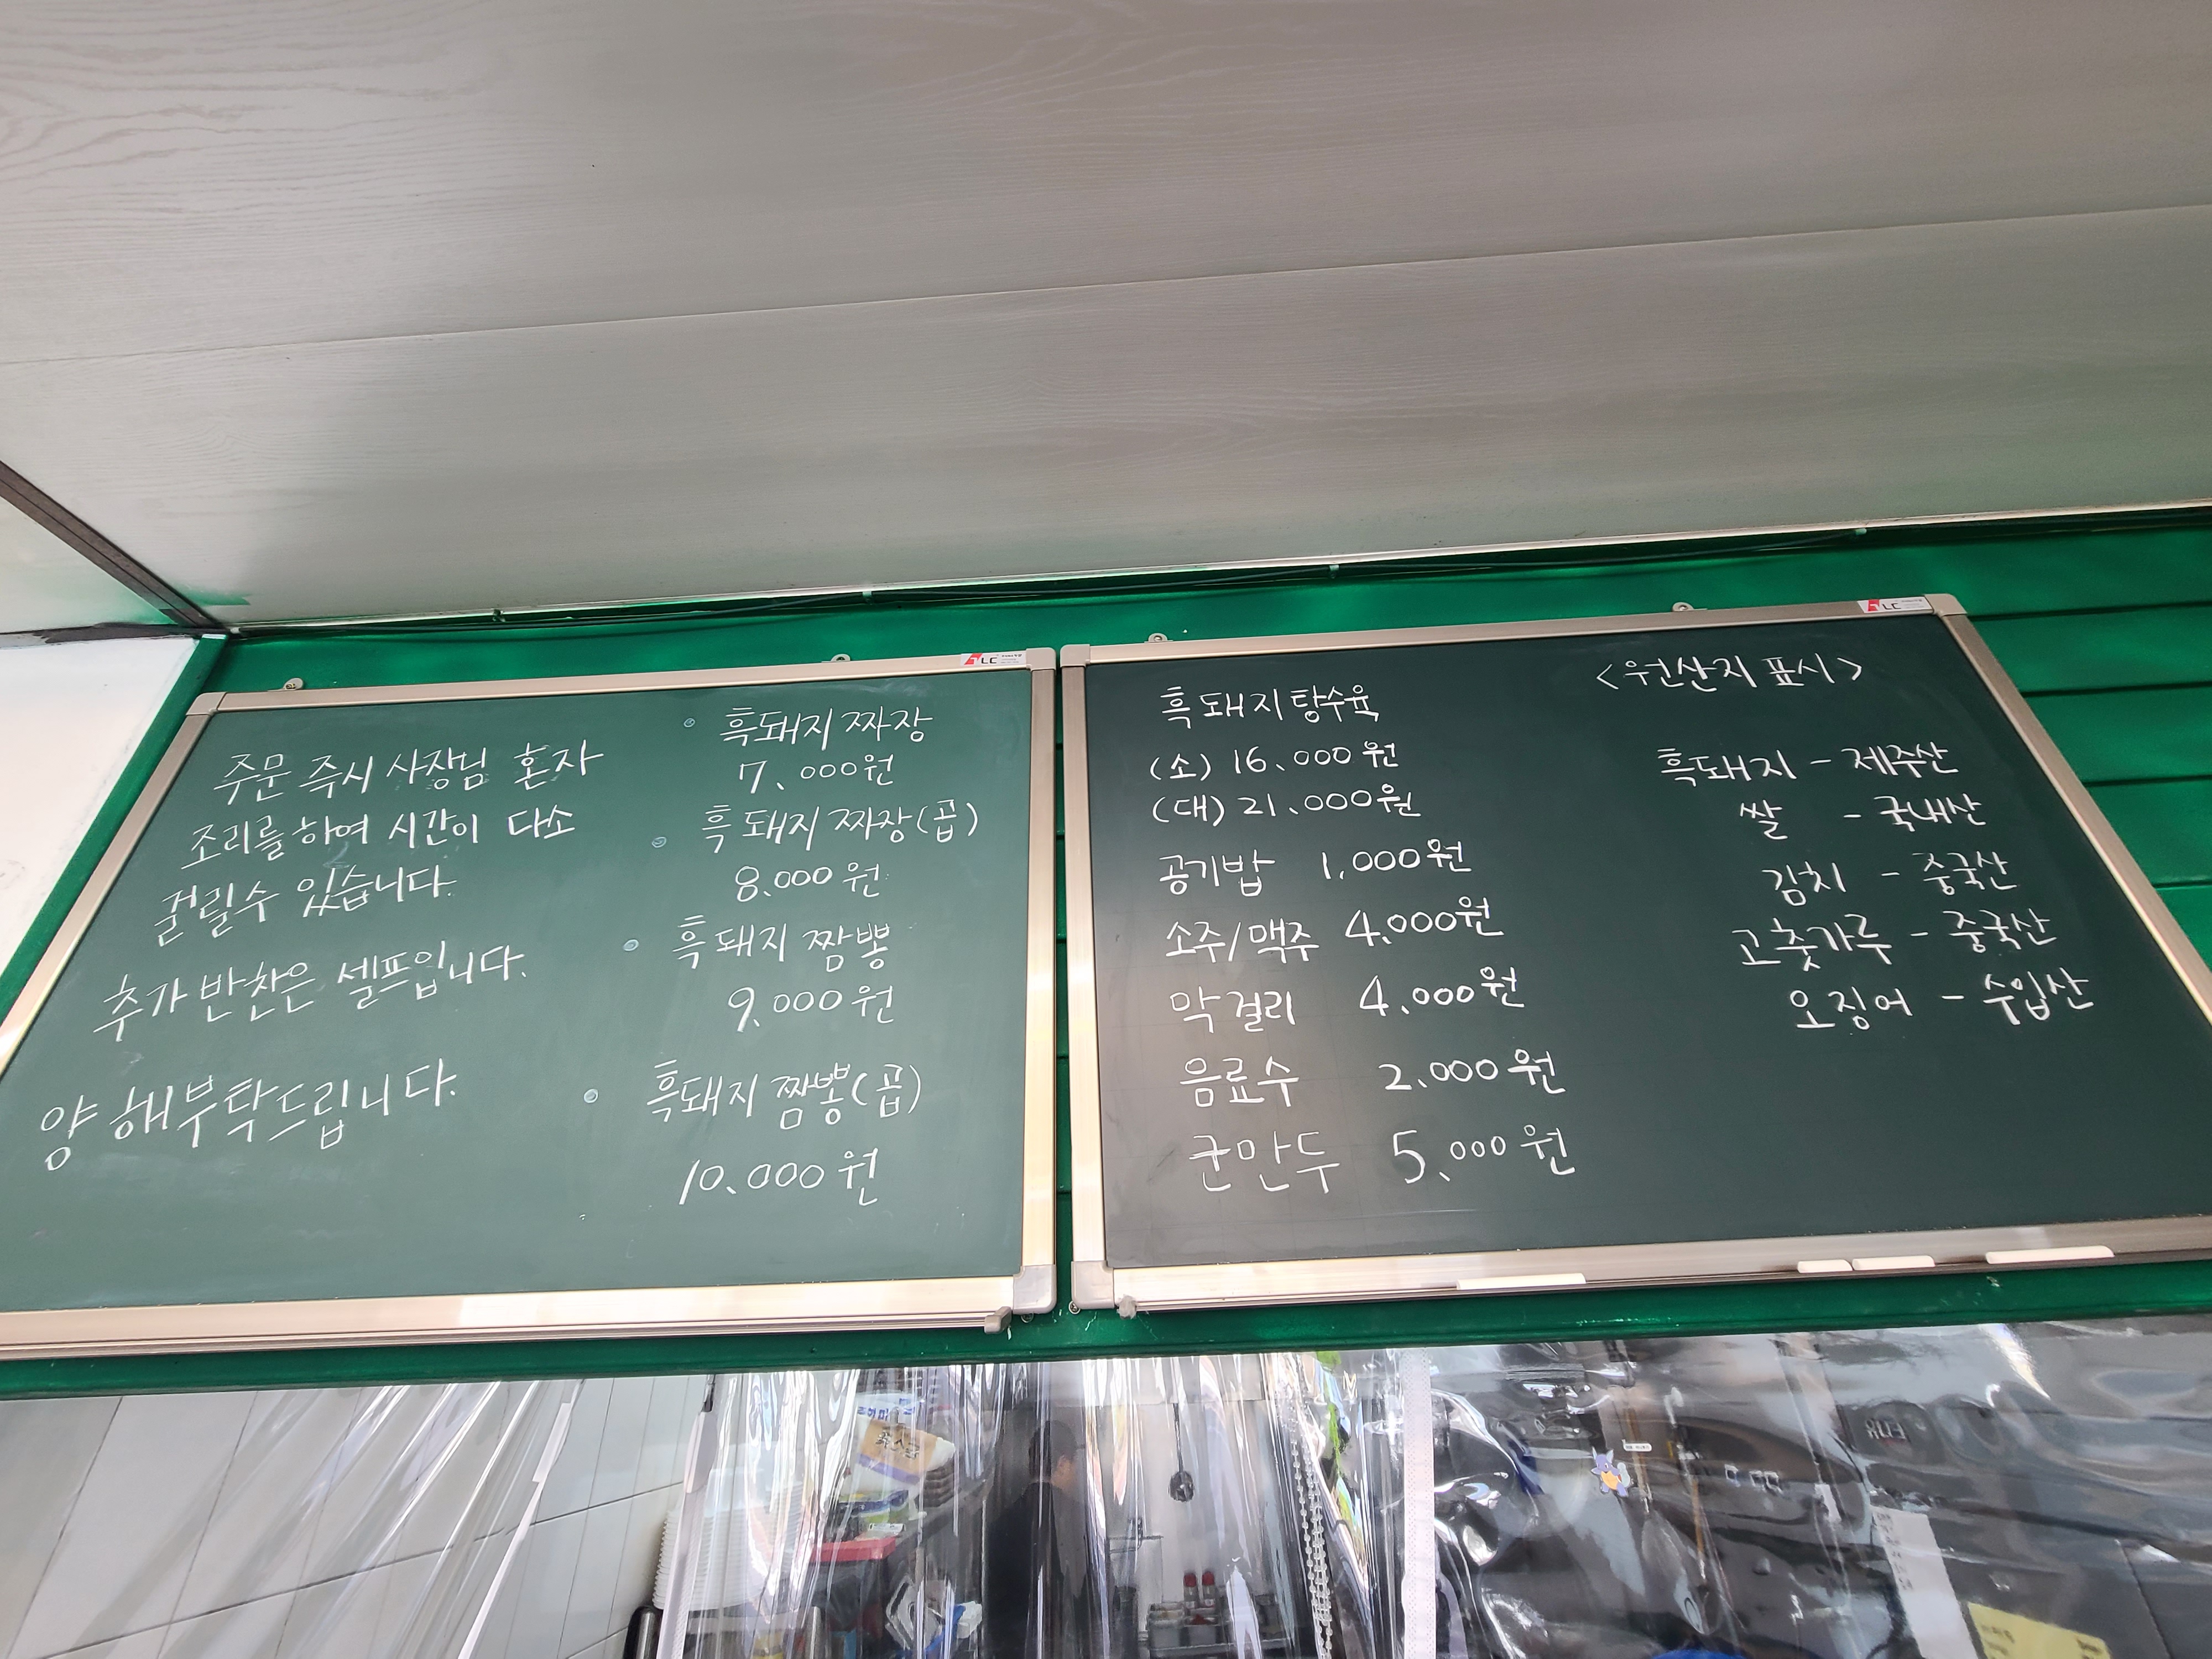 주문 즉시 사장님 혼자
조리를 하여 시간이 다소
걸릴수 있습니다.
추가 반찬은 셀프입니다.
양해부탁드립니다.
• 흑돼지 짜장
7.000원
• 흑돼지 짜장(곱)
8.000원
• 흑돼지 짬뽕
9.000원
• 흑돼지 짬뽕(곱)
10.000원
LC
흑돼지탕수육
(소) 16.000원
(대) 21.000원
공기밥 1.000원
소주/맥주 4.000원
막걸리 4.000원
음료수 2.000원
군만두 5.000원
<원산지 표시>
흑돼지 - 제주산
쌀 - 국내산
김치 - 중국산
고춧가루 - 중국산
오징어 - 수입산
LC